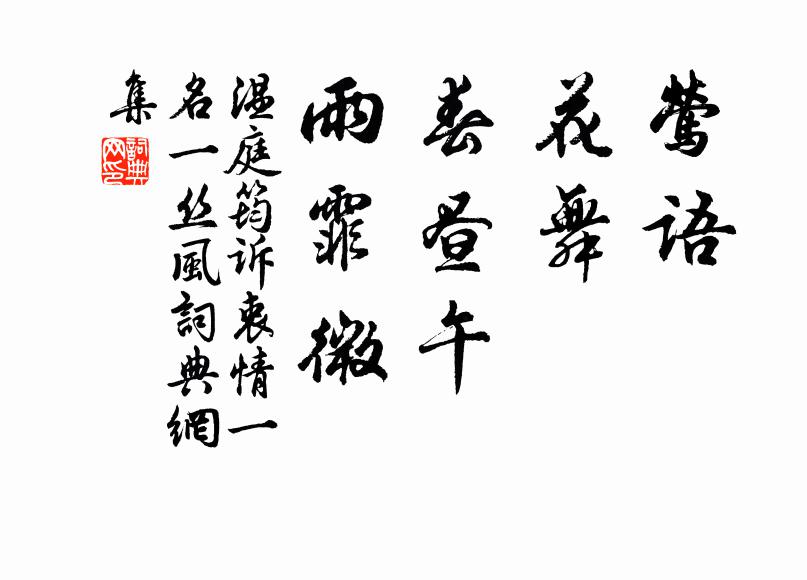 鶯語
花舞
春晝午
雨霏微
溫庭筠訴衷情一
名一丝風詞典網
集
詞典
网印